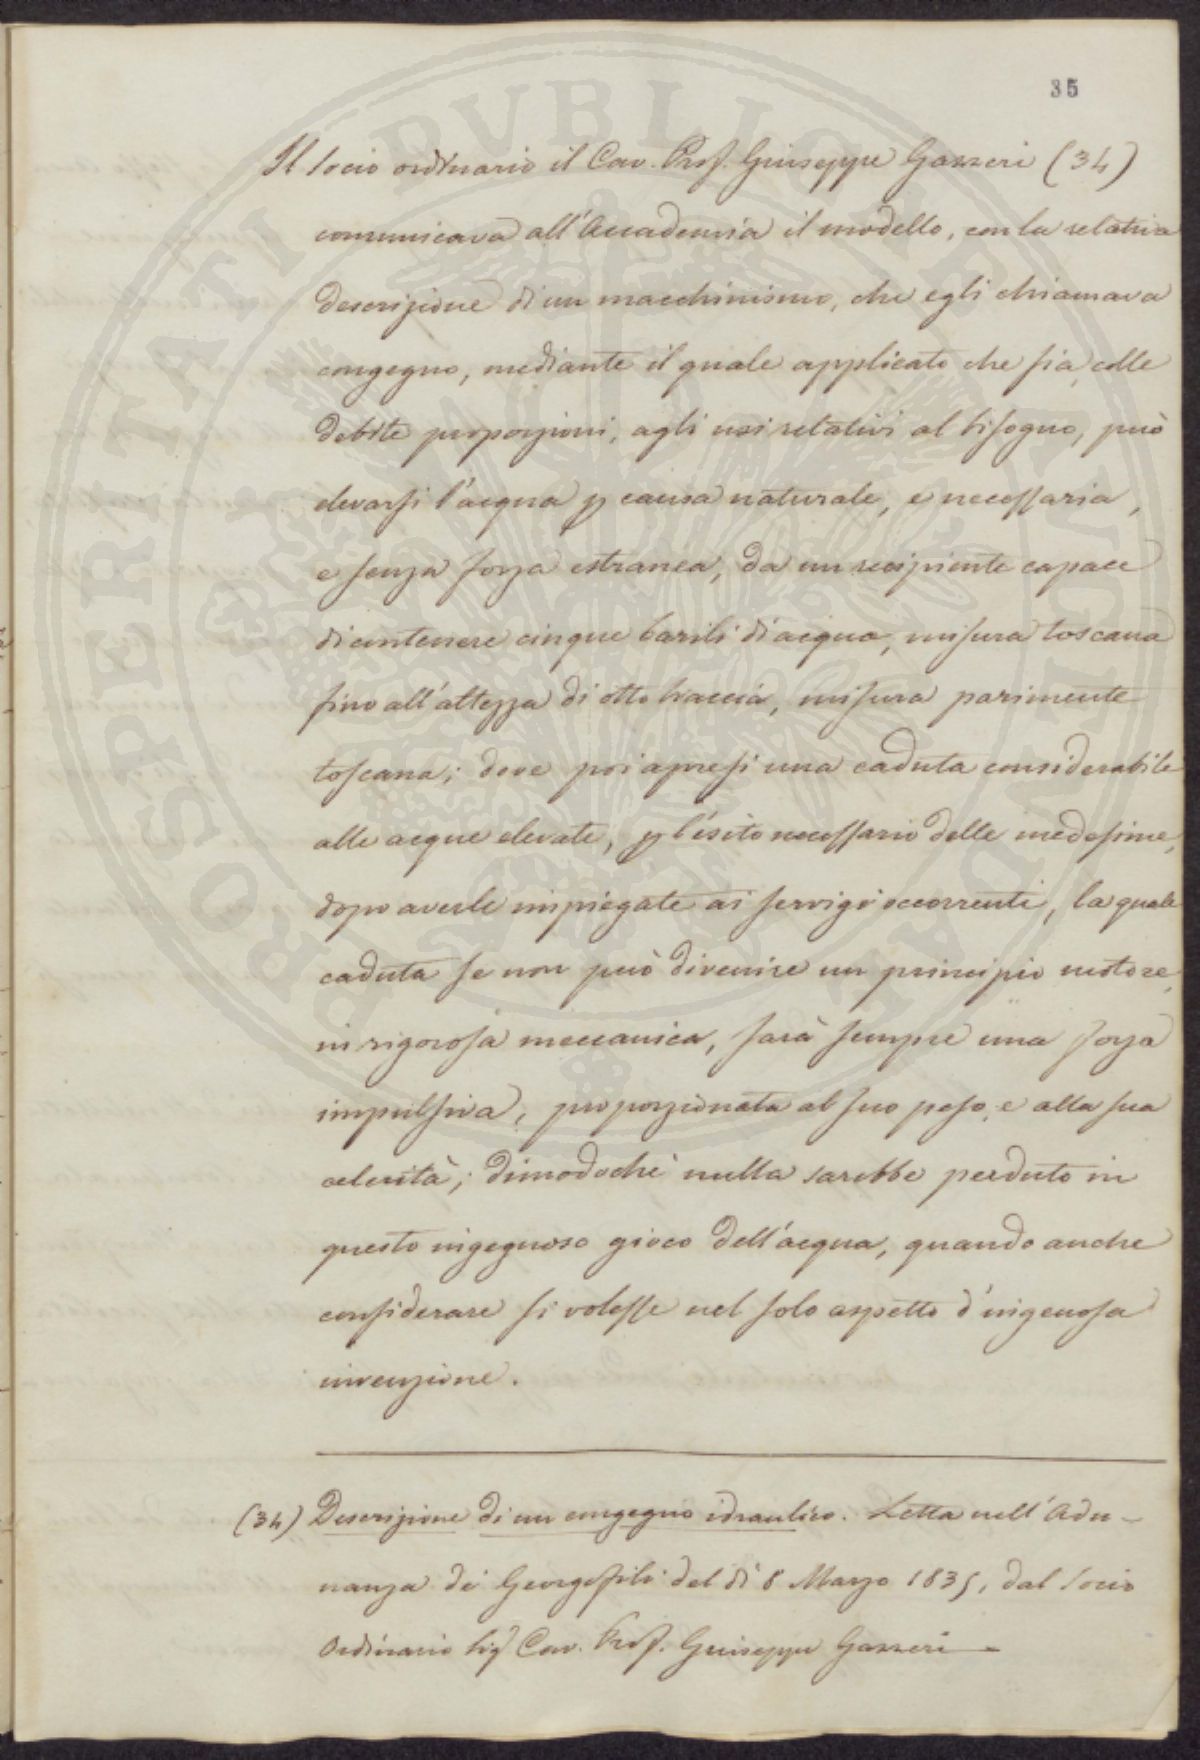 35
Il socio ordinario il Cav. Prof. Giuseppe Gazzeri (34)
comunicava all'Accademia il modello, con la relativa
descrizione di un macchinismo, che egli chiamava
congegno, mediante il quale applicato che sia, colle
debite proporzioni, agli usi relativi al bisogno, può
elevarsi l'acqua p causa naturale, e necessaria,
e senza forza estranea, da un recipiente capace
di contenere cinque barili di acqua, misura toscana
fino all'altezza di otto braccia, misura parimente
toscana; dove poi apresi una caduta considerabile
alle acque elevate, p l'esito necessario delle medesime,
dopo averle impiegate ai servigi occorrenti, la quale
caduta se non può divenire un principio motore,
in rigorosa meccanica, sarà sempre una forza
impulsiva, proporzionata al suo peso, e alla sua
celerità; dimodoché nulla sarebbe perduto in
questo ingegnoso gioco dell'acqua, quando anche
considerare si volesse nel solo aspetto d'ingenosa
invenzione.
(34) Descrizione di un congegno idraulico. Letta nell'Adu-
nanza dei Georgofili del dì 8 Marzo 1835, dal Socio
Ordinario Sig Cav. Prof. Giuseppe Gazzeri
PROSPERITATI PVBLICAE AVGENDAE